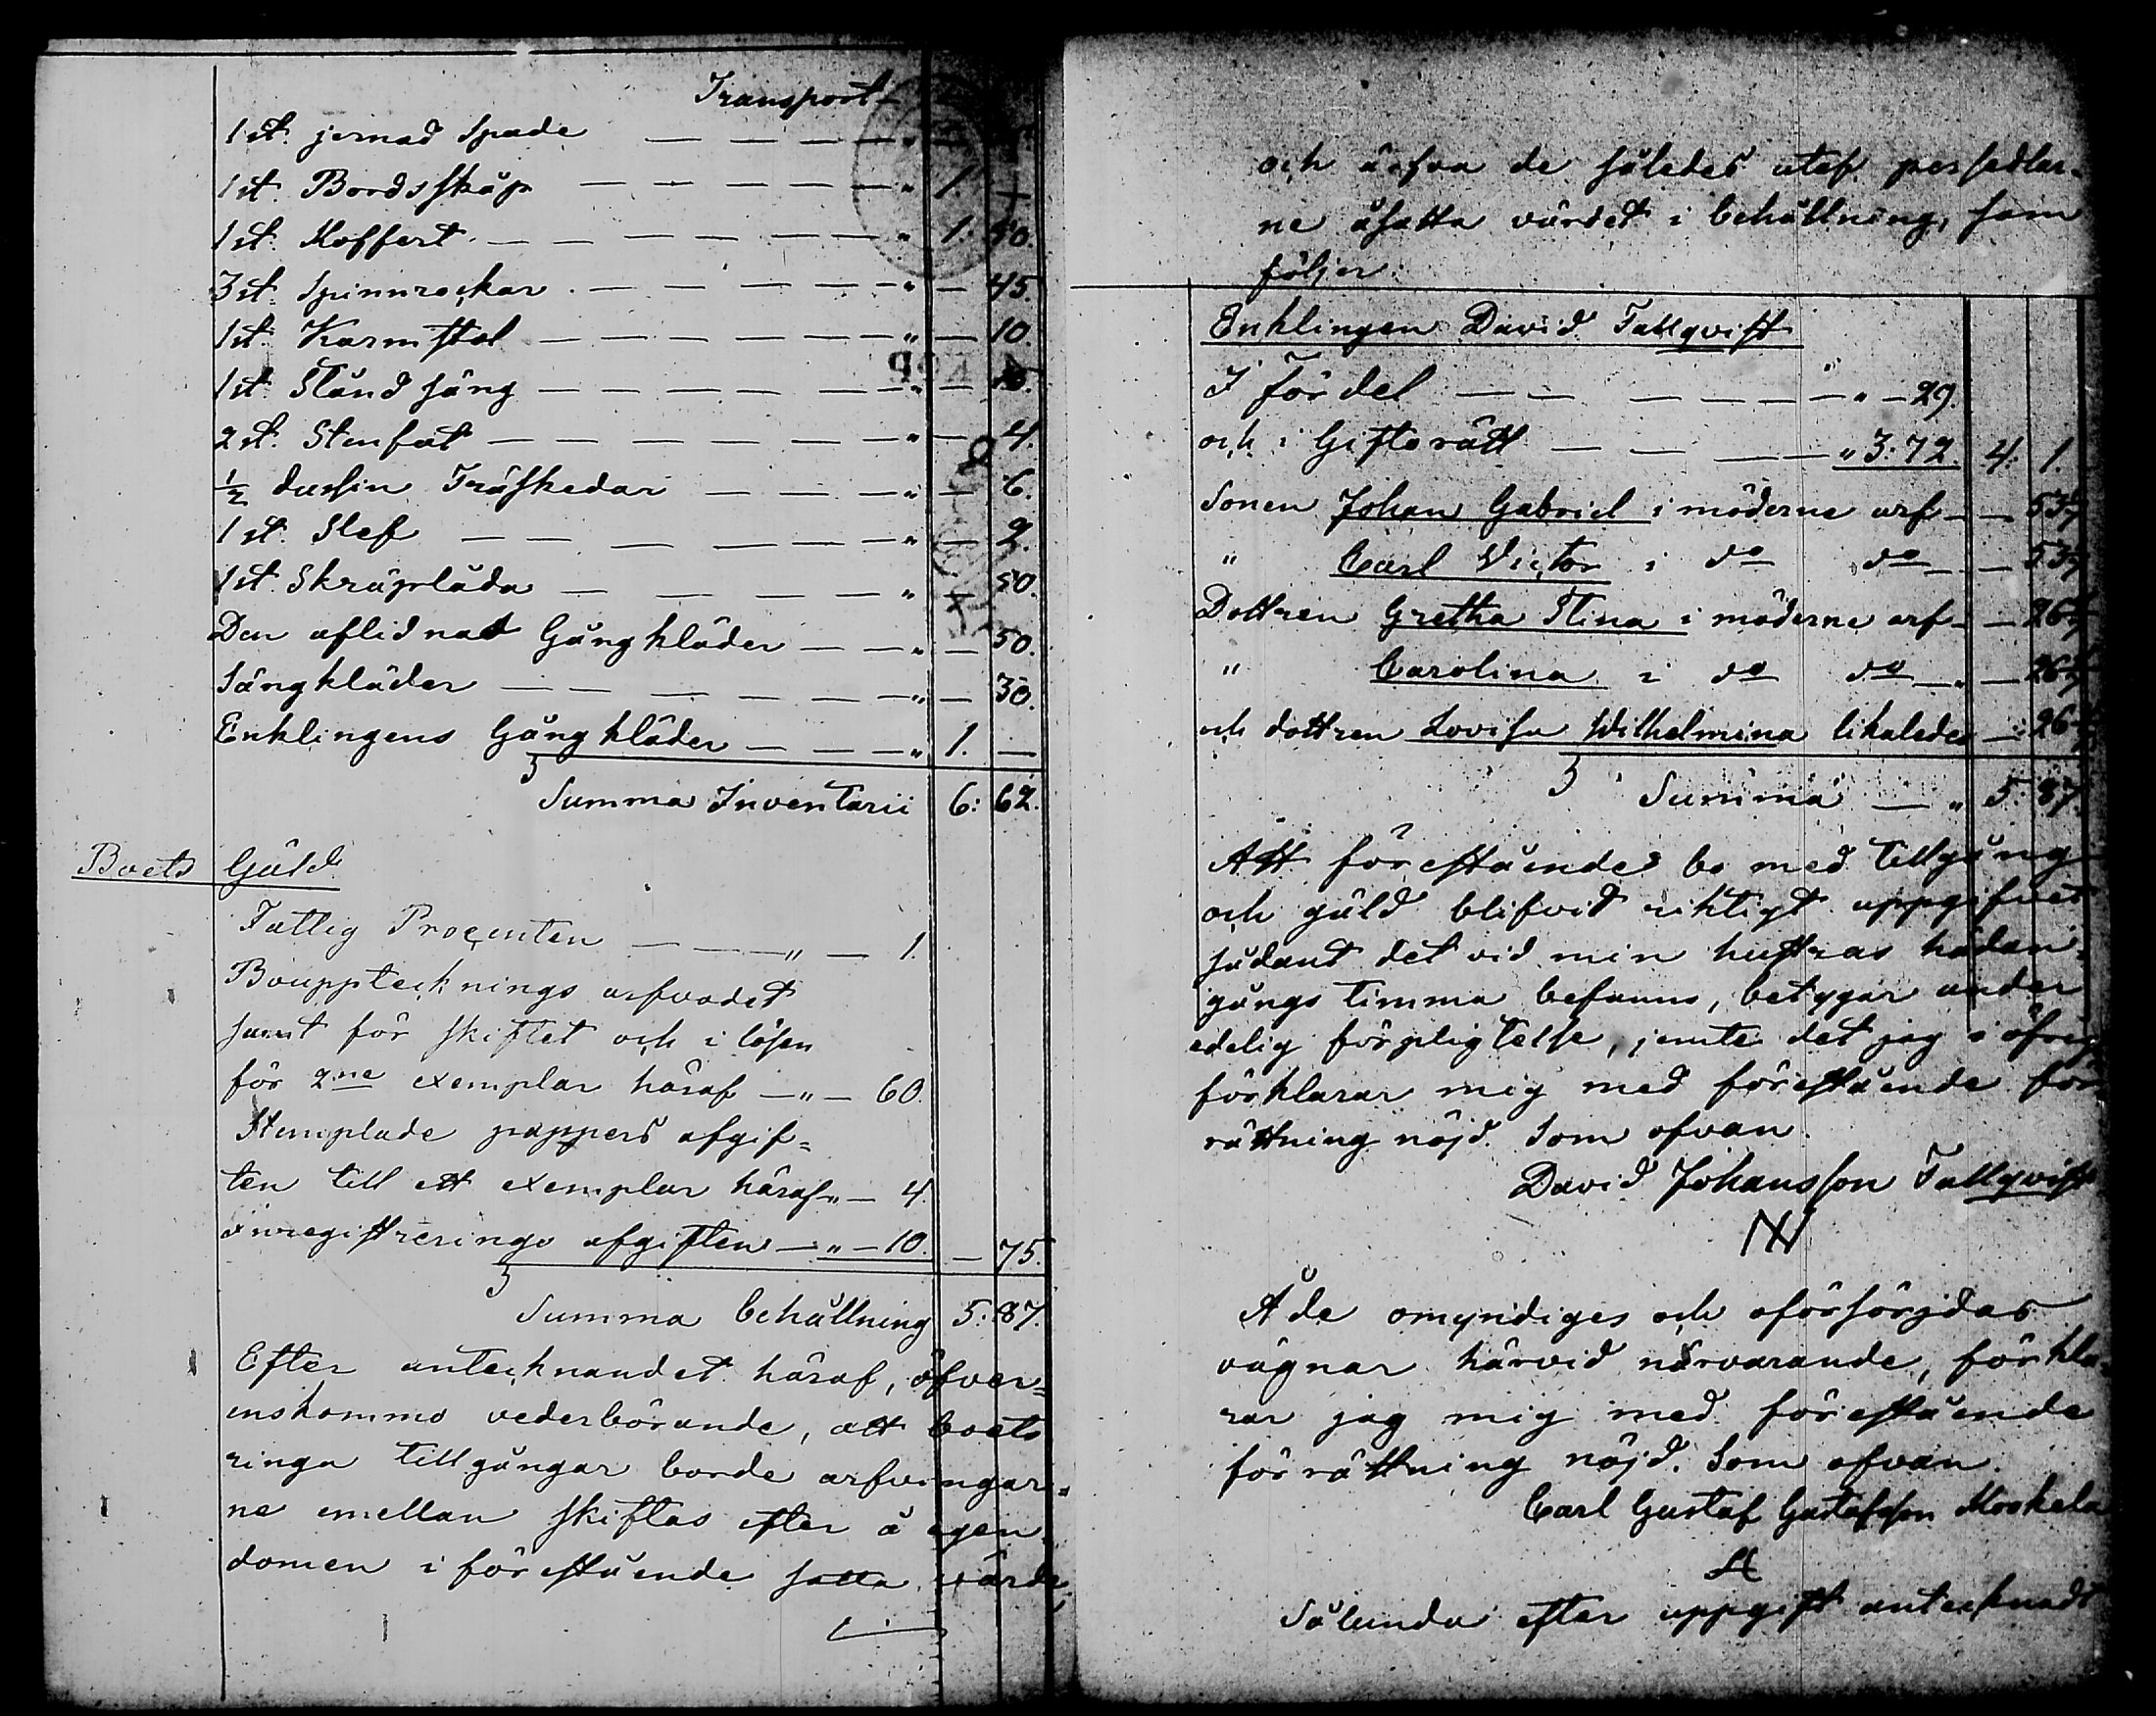 Transport
1 st. jernad Spade — — — — — " —
1 st. Bordsskåp — — — — — " 1. —
1 st. Koffert — — — — — " 1. 50.
3 st. Spinnrockar — — — — — " — 45.
1 st. Karmstol — — — — — " — 10.
1 st. Ständ säng — — — — — " —
2 st. Stenfat — — — — — " — 4.
½ dussin Träskedar — — — " — 6.
1 st. Slef — — — — — " — 2.
1 st. Skräplåda — — — — " — 50.
Den aflidnas Gångkläder — — " — 50.
Sängkläder — — — — — " — 30.
Enklingens Gångkläder — — — " 1. —
Summa Inventarii 6: 62.
Boets Gäld
Fattig Procenten — — " — 1.
Boupptecknings arfvodet
samt för skiftet och i lösen
för 2ne exemplar häraf — " — 60.
Stemplade pappers afgif=
ten till ett exemplar häraf " — 4.
Inregistrerings afgiften — " — 10. — 75.
Summa behållning 5: 87.
Efter antecknandet häraf, öfver=
enskommo vederbörande, att boets
ringa tillgångar borde arfvingar=
ne emellan skiftas efter å egen=
domen i förestående satta värde,
och ärfva de således utaf persedlar=
ne åsatta värdet i behållning, som
följer:
Enklingen David Tallqvist
I fördel — — — — — " — 29.
och i Giftorätt — — — — " 3: 72. 4: 1.
Sonen Johan Gabriel i möderne arf — — 53
" Carl Victor i do do — — 53
Dottren Gretha Stina i möderne arf — — 26
" Carolina i do do — " — 26
och dottren Lovisa Wilhelmina likaledes — 26
Summa — " 5. 87.
Att förestående bo med tillgång
och gäld blifvit riktigt uppgifvet
sådant det vid min hustrus hädan=
gångs timma befanns, betygar under
edelig förpligtelse, jemte det jag i öfrigt
förklarar mig med förestående för
rättning nöjd. Som ofvan.
David Johansson Tallqvist
Å de omyndiges och oförsörjdas
vägnar härvid närvarande, förkla=
rar jag mig med förestående
förrättning nöjd. Som ofvan.
Carl Gustaf Gustafsson
Sålunda efter uppgift antecknadt